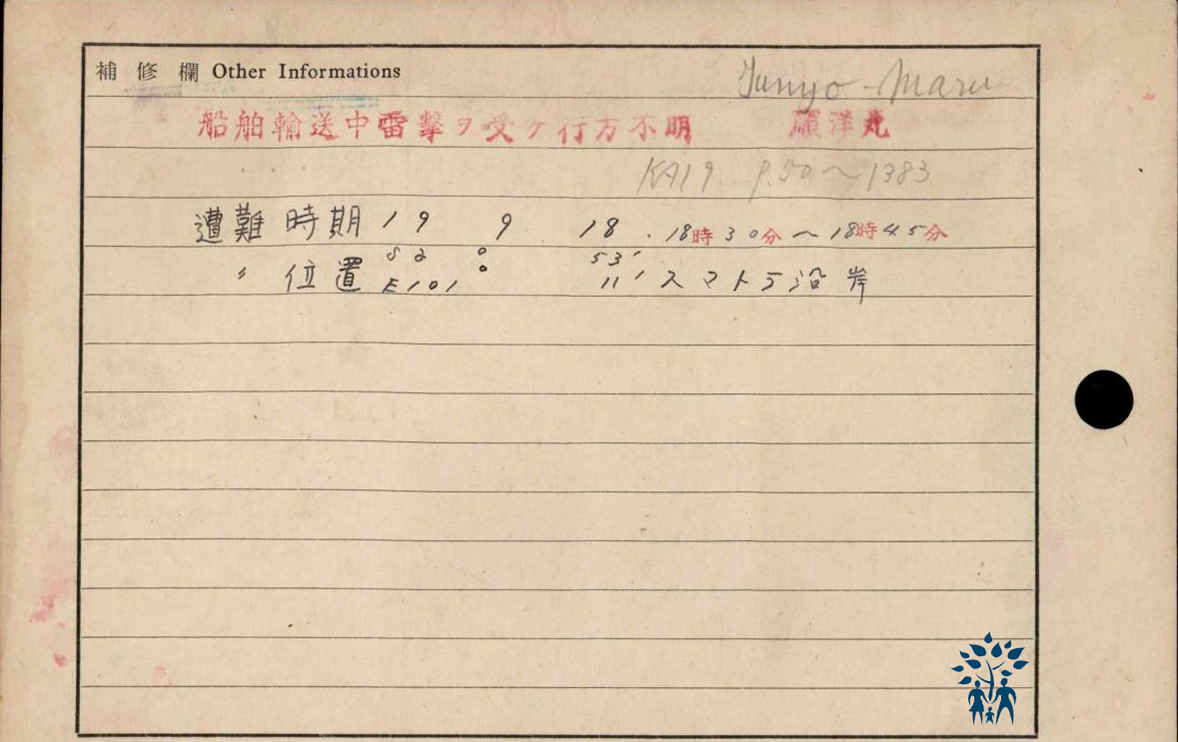 補修欄 Other Informations
Junyo-Maru
船舶輸送中雷撃ヲ受ケ行方不明 順洋丸
KA19 P.50～1383
遭難時期 19 9 18. 18時30分～18時45分
〃 位置 S2° 53′
E101° 11′ スマトラ沿岸